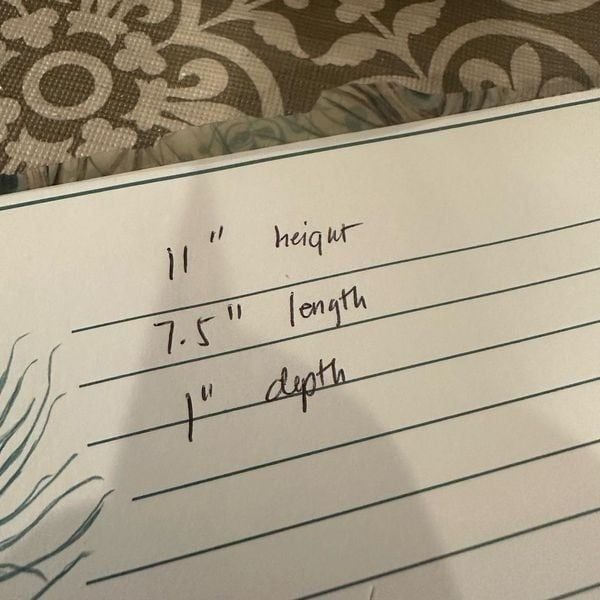 11" height
7.5" length
1" depth